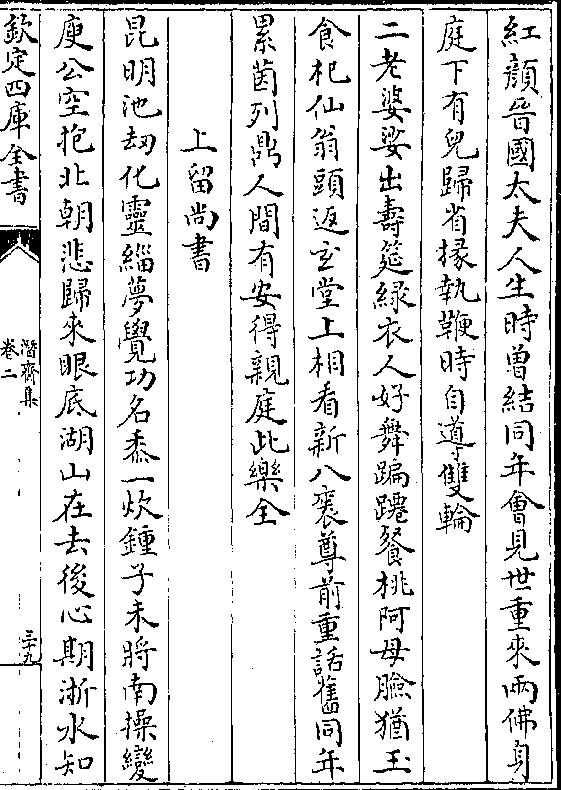 紅顔晉國太夫人生時曽結同年會見世重來兩佛身
庭下有兒歸省掾執鞭時自導雙輪
二老婆娑出壽筵緑衣人好舞蹁躚餐桃阿母臉猶玉
食杞仙翁頭返玄堂上相看新八袠尊前重話舊同年
累茵列鼎人間有安得親庭此樂全
上留尚書
昆明池刼化靈緇夢覺功名黍一炊鍾子未將南操變
庾公空抱北朝悲歸來眼底湖山在去後心期浙水知
欽定四庫全書
潛齋集
卷二
三十九